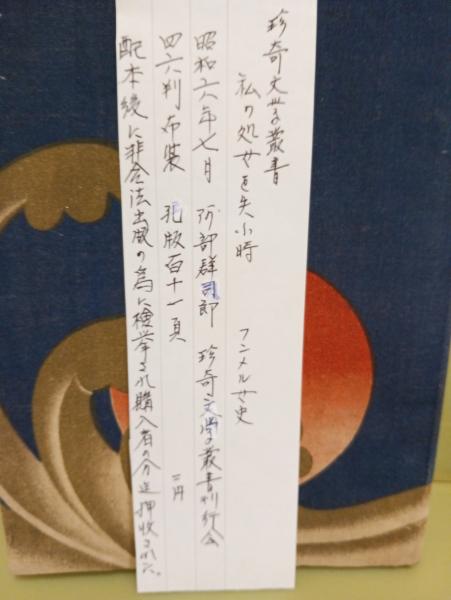 珍奇文学叢書
私の処女を失ふ時　フンメル女史
昭和六年七月　阿部群司郎　珍奇文学叢書刊行会
四六判布装　孔版百十一頁　二円
配本後に非合法出版の為に検挙され購入者の分迄押収された。